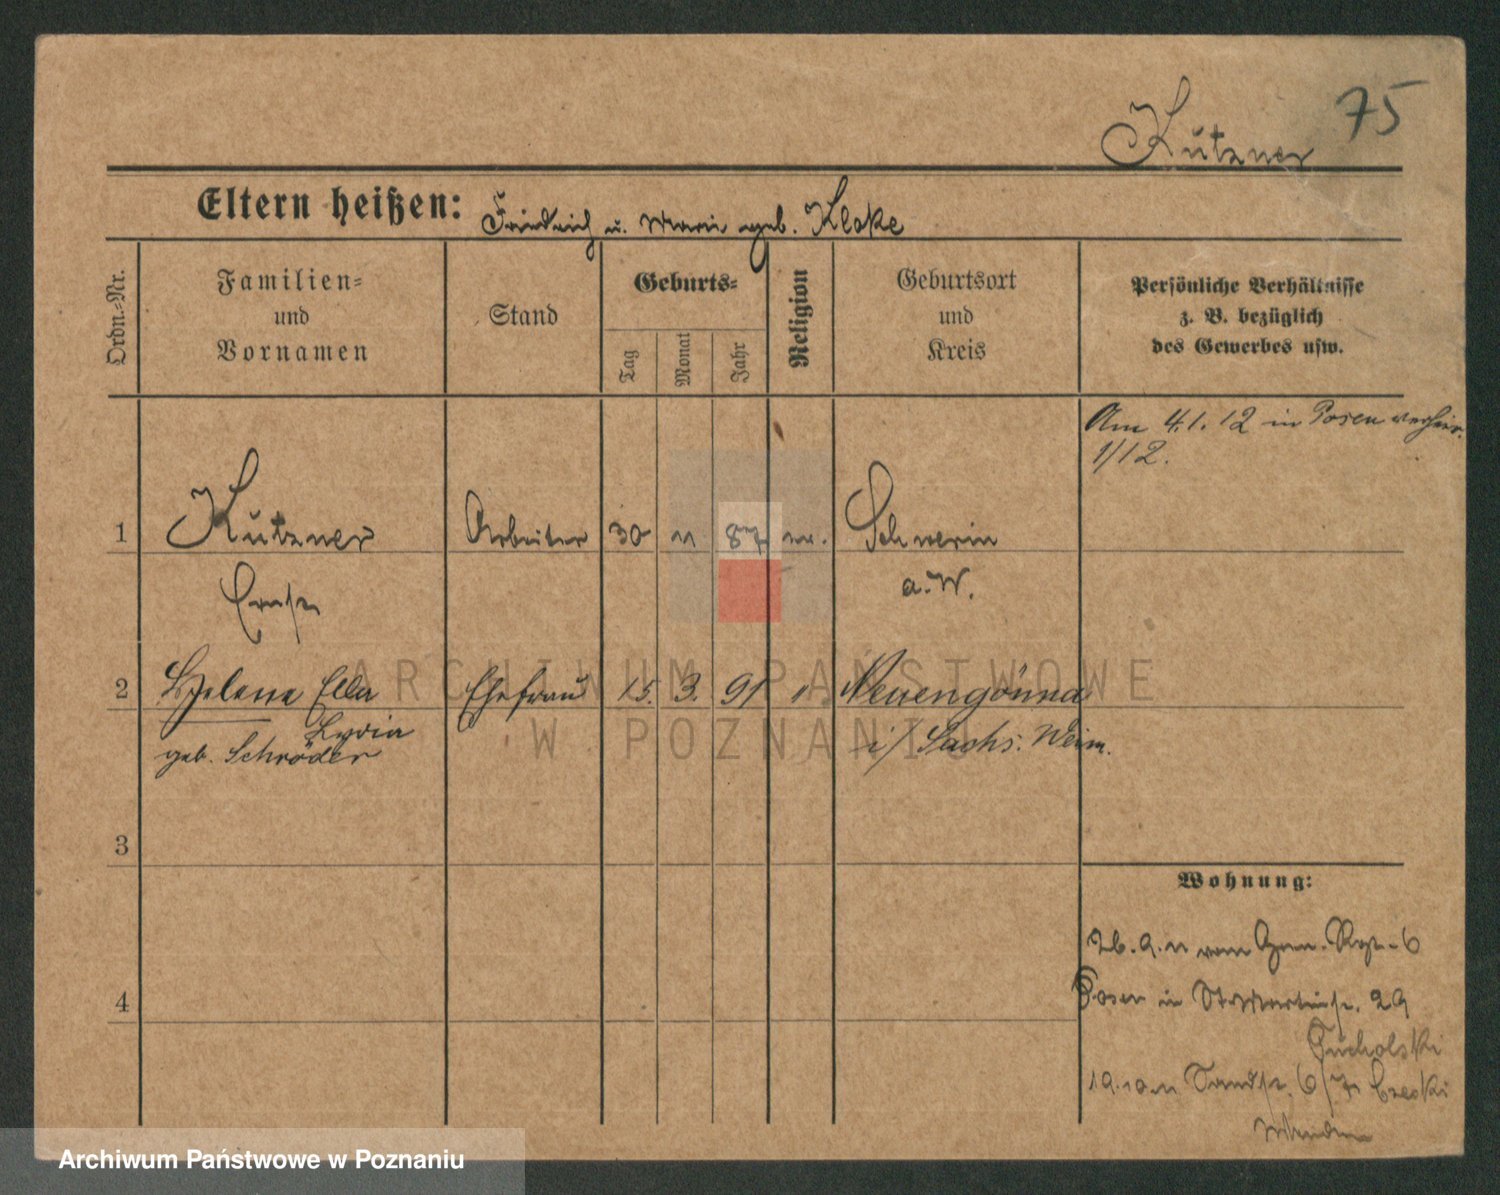 75
Kützner
Eltern heißen: Friedrich u. Marie geb. Kloke
Ordn.-Nr.
Familien-
und
Vornamen
Stand
Geburts-
Tag
Monat
Jahr
Religion
Geburtsort
und
Kreis
Persönliche Verhältnisse
z. B. bezüglich
des Gewerbes usw.
Am 4.1.12 in Posen verheir.
1/12.
1 Kützner Arbeiter 30 11 87 ev. Schwerin
Ernst a. W.
2 Helene Ella Ehefrau 15. 3. 91 " Neuengönna
Lydia
geb. Schröder i/ Sachs. Weim.
3
Wohnung:
26.9.11 vom Gren. Rgt. 6
4
Posen in St. Martinstr. 29
Tucholski
19.10.11 Sandstr. 6/7
ARCHIWUM PAŃSTWOWE
W POZNANIU
Archiwum Państwowe w Poznaniu